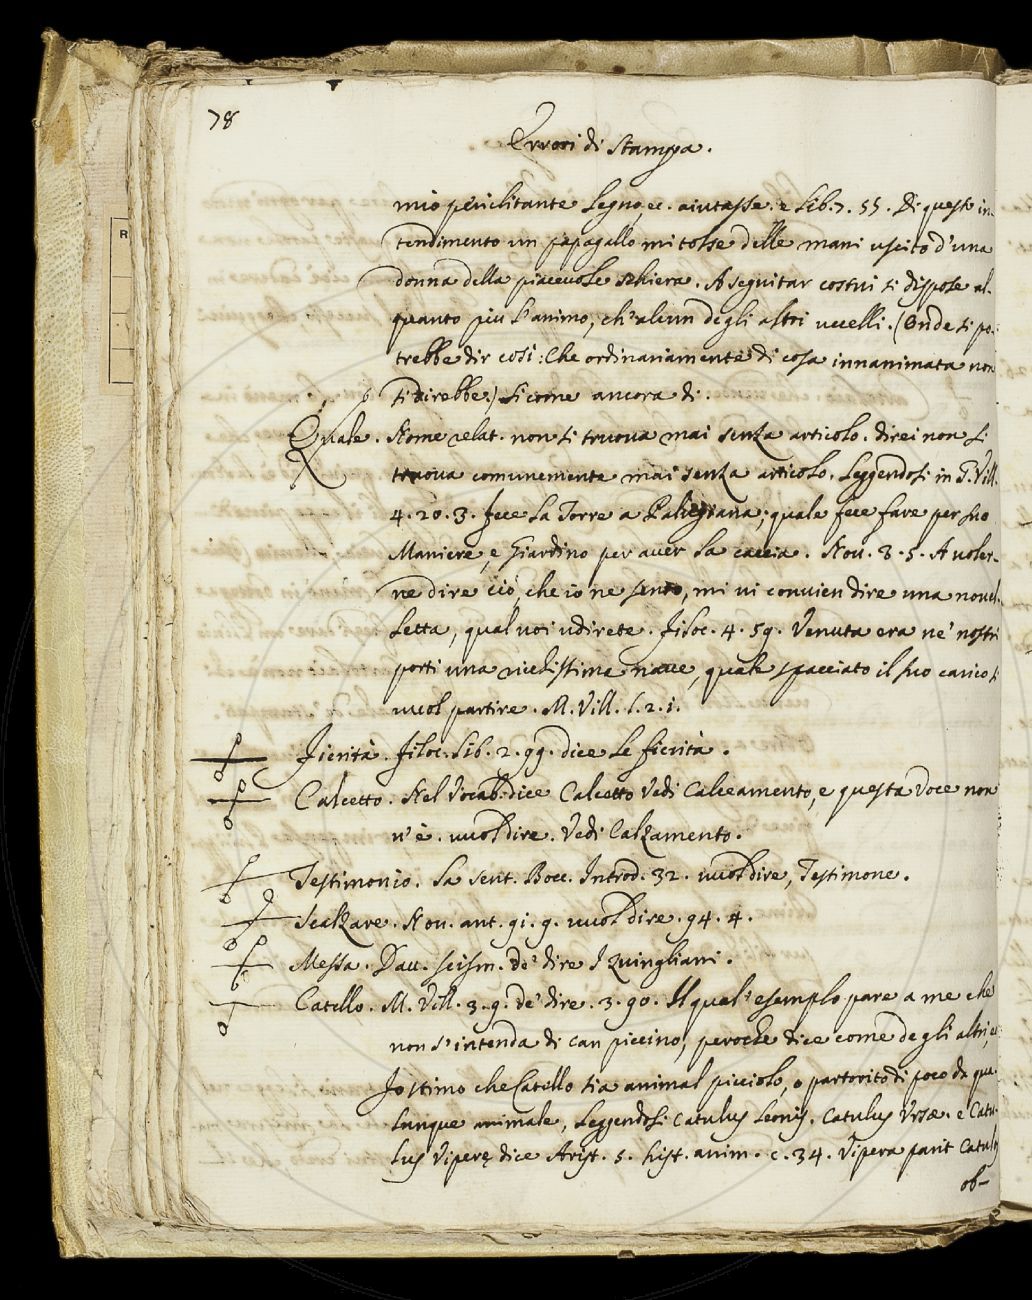 78
Errori di Stampa.
mio periclitante Legno, ec. aiutasse. e Lib. 7. 55. Di questo in-
tendimento un papagallo mi tolse delle mani uscito d'una
donna della piacevole schiera. A seguitar costui si dispose al-
quanto più l'animo, ch'alcun degli altri uccelli. (Onde si po-
trebbe dir così: Che ordinariamente di cosa innanimata non
si direbbe) Sicome ancora di.
Quale. Nome relat. non si truova mai senza articolo. direi non si
truova comunemente mai senza articolo. Leggendosi in G. Vill.
4. 20. 3. fece la Torre a quale fece fare per suo
Maniere, e Giardino per aver la caccia. Nov. 3. 5. A voler-
ne dire ciò, che io ne sento, mi vi convien dire una novel-
letta, qual voi udirete. Filoc. 4. 59. Venuta era ne' nostri
porti una ricchissima nave, quale spacciato il suo carico si
vuol partire. M. Vill. 1. 2. 1.
Fierità. Filoc. Lib. 2. 99. dice le fierità.
Calcetto. Nel Vocab. dice Calcetto Vedi Calceamento, e questa voce non
v'è. vuol dire. Vedi Calzamento.
Testimonio. La sent. Bocc. Introd. 32. vuol dire, Testimone.
Scalzare. Nov. ant. 91. 9. vuol dire. 94. 4.
Messa. Dav. scism. de' dire I Zuingliani.
Catello. M. Vill. 3. 9. de' dire. 3. 90. Il qual' esemplo pare a me che
non s'intenda di can piccino, peroche dice come degli altri, ec
Io stimo che Catello sia animal picciolo, o partorito di poco da qua-
lunque animale, Leggendosi Catulus Leonis. Catulus Ursæ. e Catu-
lus Viperę dice Arist. 5. hist. anim. c. 34. Vipera parit Catulos
ob-
R